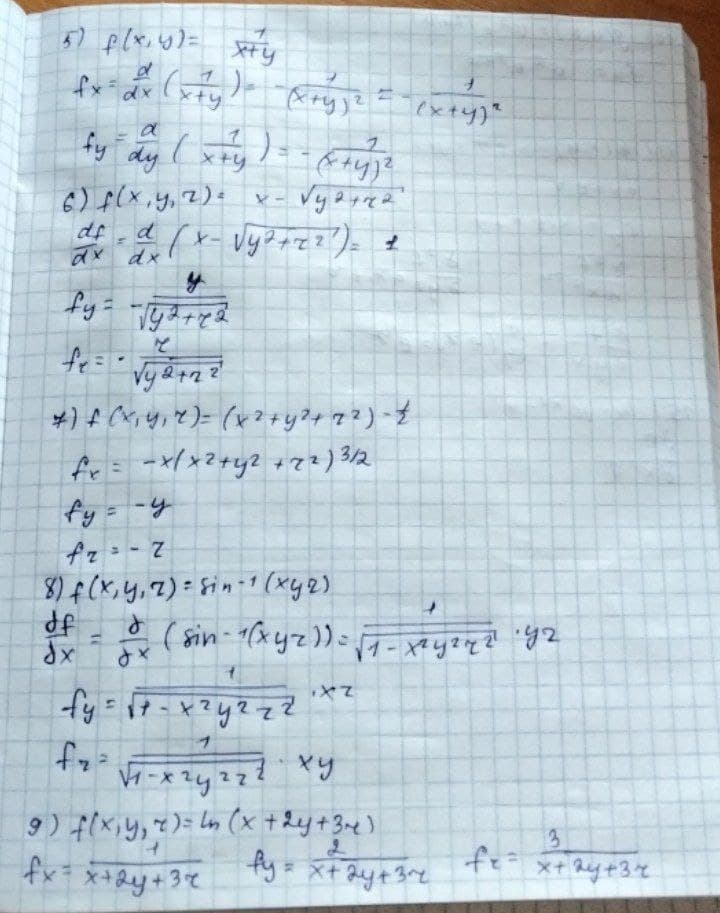 5) f(x,y)= 1/(x+y)
fx = d/dx (1/(x+y)) = - 1/(x+y)² = - 1/(x+y)²
fy = d/dy (1/(x+y)) = - 1/(x+y)²
6) f(x,y,z) = x - √(y²+z²)
df/dx = d/dx (x - √(y²+z²)) = 1
fy = - y/√(y²+z²)
fz = - z/√(y²+z²)
7) f(x,y,z) = (x²+y²+z²) - 1/2
fx = -x(x²+y²+z²) 3/2
fy = -y
fz = -z
8) f(x,y,z) = sin-1(xyz)
∂f/∂x = ∂/∂x (sin-1(xyz)) = 1/√(1-x²y²z²) · yz
fy = 1/√(1-x²y²z²) · xz
fz = 1/√(1-x²y²z²) · xy
9) f(x,y,z) = ln(x+2y+3z)
fx = 1/(x+2y+3z) fy = 2/(x+2y+3z) fz = 3/(x+2y+3z)